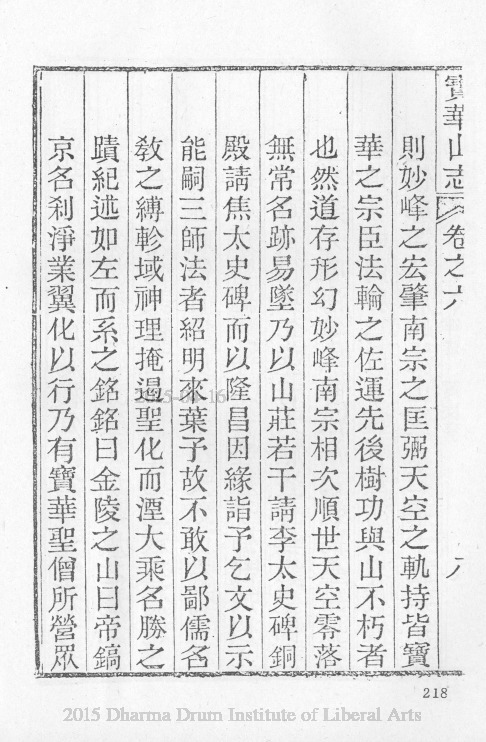 寶華山志 卷之六 八
則妙峰之宏肇南宗之匡弼天空之軌持皆寶
華之宗臣法輪之佐運先後樹功與山不朽者
也然道存形幻妙峰南宗相次順世天空零落
無常名跡易墜乃以山莊若干請李太史碑銅
殿請焦太史碑而以隆昌因緣詣予乞文以示
能嗣三師法者紹明來葉予故不敢以鄙儒名
敎之縛軫域神理掩遏聖化而湮大乘名勝之
蹟紀述如左而系之銘銘曰金陵之山曰帝鎬
京名刹淨業翼化以行乃有寶華聖僧所營眾
218
2015 Dharma Drum Institute of Liberal Arts